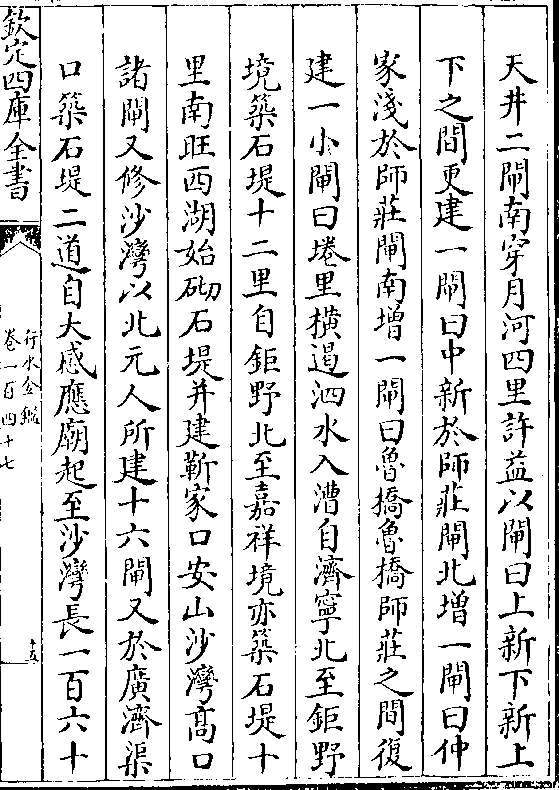 天井二閘南穿月河四里許益以閘曰上新下新上
下之間更建一閘曰中新於師莊閘北增一閘曰仲
家淺於師莊閘南增一閘曰魯橋魯橋師莊之間復
建一小閘曰堘里橫遏泗水入漕自濟寧北至鉅野
境築石堤十二里自鉅野北至嘉祥境亦築石堤十
里南旺西湖始砌石堤并建靳家口安山沙灣高口
諸閘又修沙灣以北元人所建十六閘又於廣濟渠
口築石堤二道自大感應廟起至沙灣長一百六十
欽定四庫全書
行水金鑑
卷一百四十七
十五